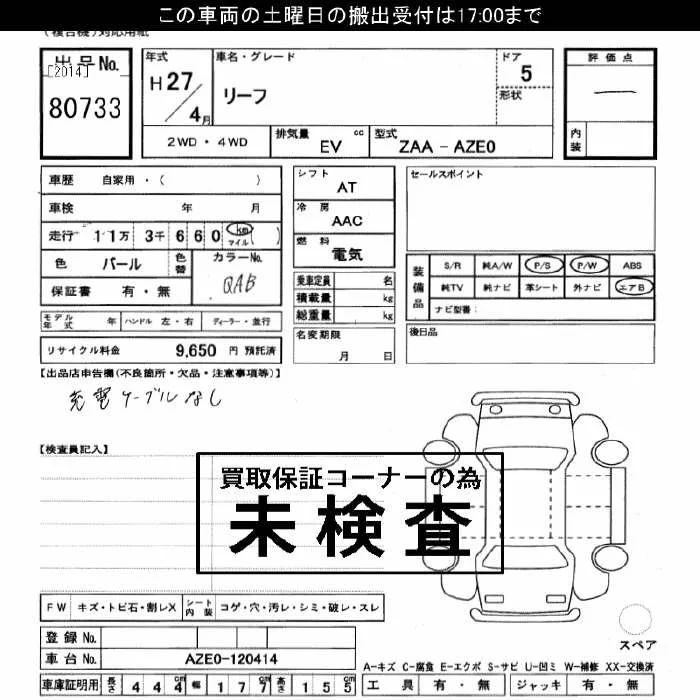 この車両の土曜日の搬出受付は17:00まで
(複合機)対応用紙
出品No.
[2014]
80733
年式
H27/4月
車名・グレード
リーフ
ドア
5
形状
評価点
内装
2WD・4WD
排気量 cc
EV
型式
ZAA-AZE0
車歴 自家用・( )
車検 年 月
走行 11万 3千 660 km マイル ( )
色 パール
色替
カラーNo.
QAB
保証書 有・無
シフト
AT
冷房
AAC
燃料
電気
乗車定員 名
積載量 kg
総重量 kg
セールスポイント
装備品
S/R 純A/W P/S P/W ABS
純TV 純ナビ 革シート 外ナビ エアB
ナビ型番:
モデル年式 年 ハンドル 左・右 ディーラー・並行
名変期限
月 日
後日品
リサイクル料金 9,650 円 預託済
【出品店申告欄(不良箇所・欠品・注意事項等)】
充電ケーブルなし
【検査員記入】
買取保証コーナーの為
未検査
FW キズ・トビ石・割レX シート内装 コゲ・穴・汚レ・シミ・破レ・スレ
登録No.
車台No. AZE0-120414
スペア
A-キズ C-腐食 E-エクボ S-サビ U-凹ミ W-補修 XX-交換済
車庫証明用 長さ 444cm 幅 177cm 高さ 155cm
工具 有・無 ジャッキ 有・無